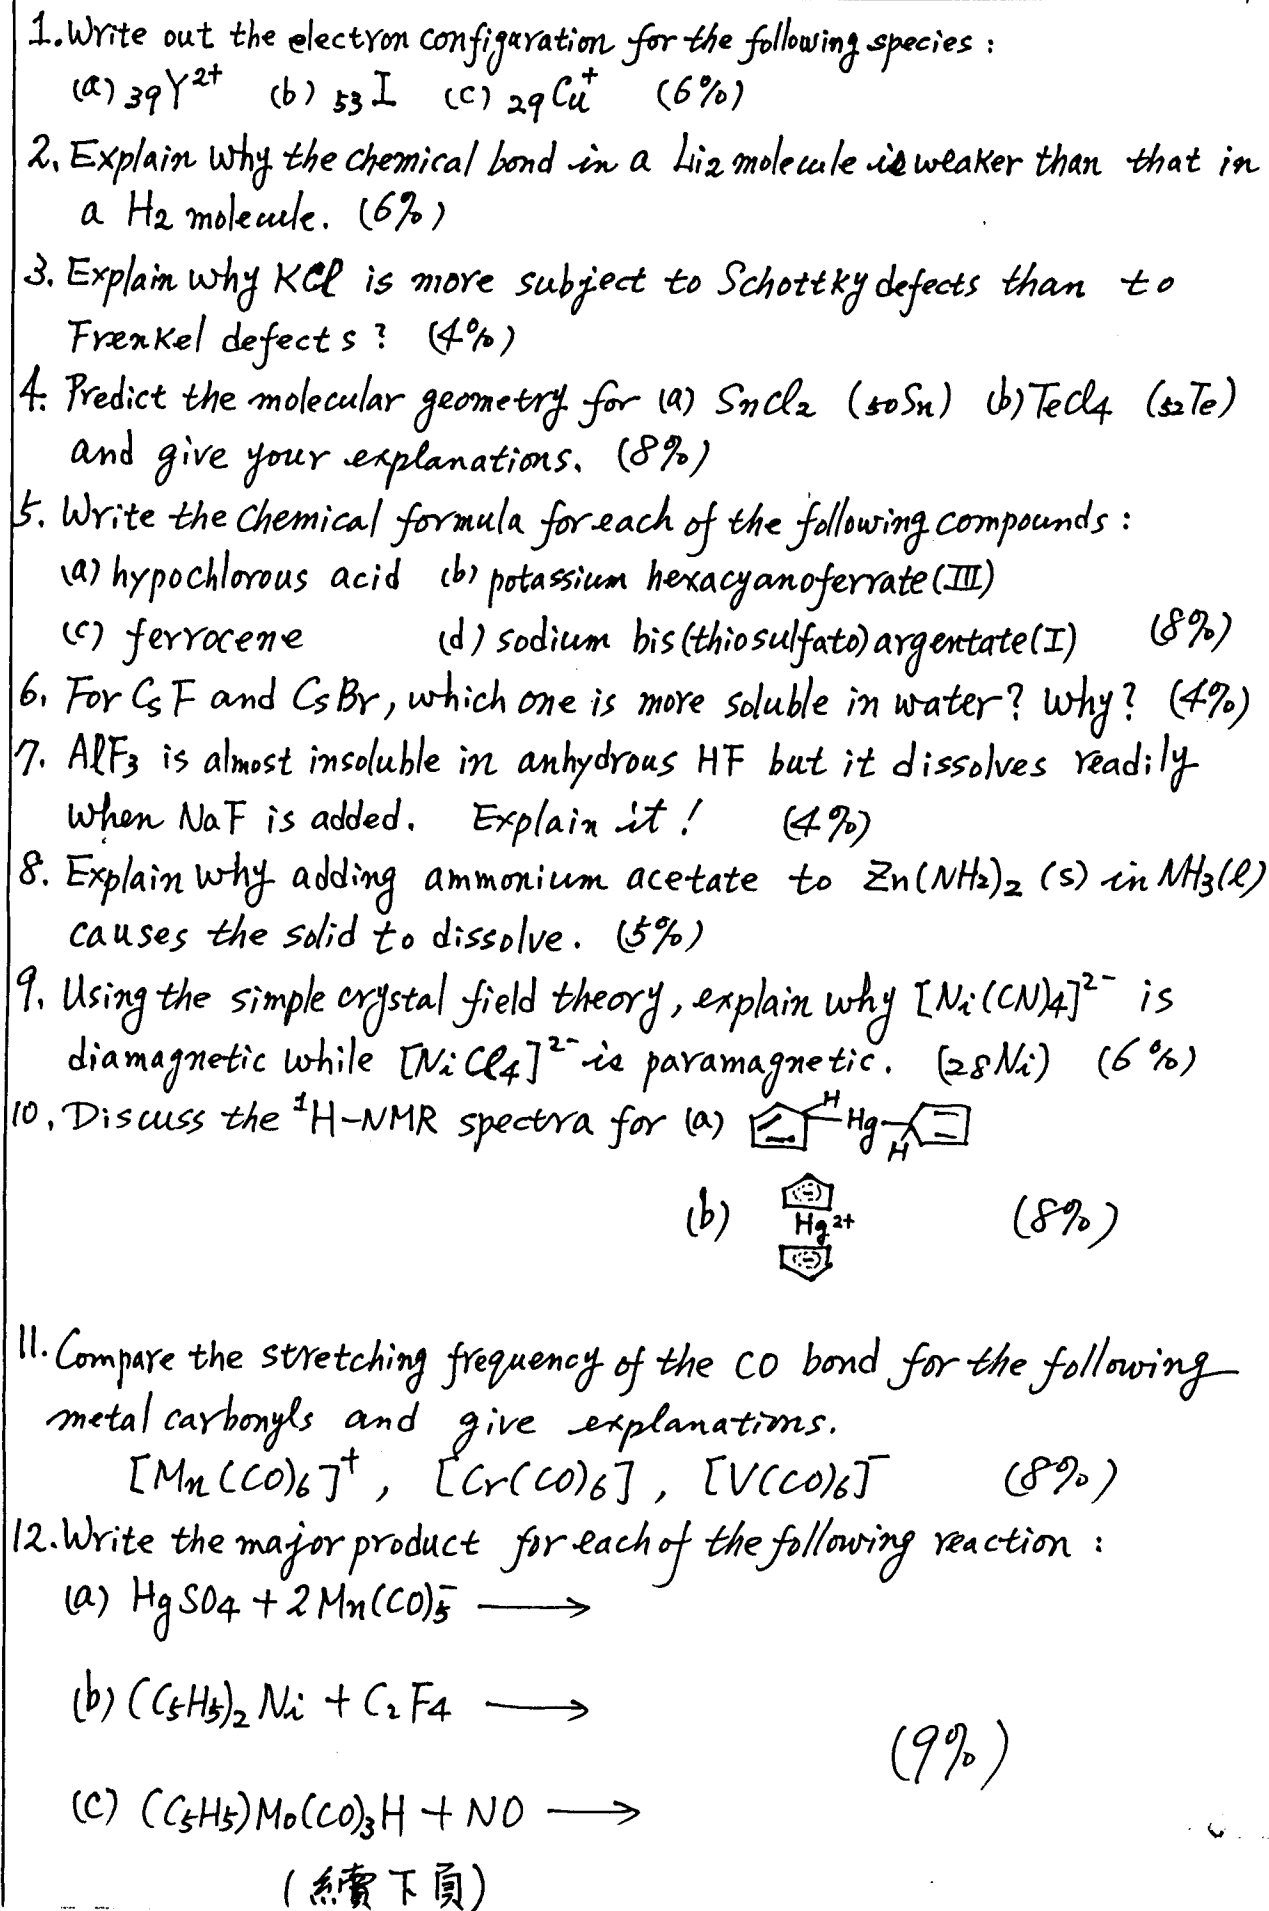 1. Write out the electron configuration for the following species :
(a) 39Y2+ (b) 53I (c) 29Cu+ (6%)
2. Explain why the chemical bond in a Li2 molecule is weaker than that in
a H2 molecule. (6%)
3. Explain why KCl is more subject to Schottky defects than to
Frenkel defects ? (4%)
4. Predict the molecular geometry for (a) SnCl2 (50Sn) (b) TeCl4 (52Te)
and give your explanations. (8%)
5. Write the chemical formula for each of the following compounds :
(a) hypochlorous acid (b) potassium hexacyanoferrate (III)
(c) ferrocene (d) sodium bis(thiosulfato)argentate(I) (8%)
6. For CsF and CsBr, which one is more soluble in water? Why? (4%)
7. AlF3 is almost insoluble in anhydrous HF but it dissolves readily
when NaF is added. Explain it! (4%)
8. Explain why adding ammonium acetate to Zn(NH2)2 (s) in NH3(l)
causes the solid to dissolve. (5%)
9. Using the simple crystal field theory, explain why [Ni(CN)4]2- is
diamagnetic while [NiCl4]2- is paramagnetic. (28Ni) (6%)
10. Discuss the 1H-NMR spectra for (a) H Hg H
(b) Hg2+ (8%)
11. Compare the stretching frequency of the CO bond for the following
metal carbonyls and give explanations.
[Mn(CO)6]+, [Cr(CO)6], [V(CO)6]- (8%)
12. Write the major product for each of the following reaction :
(a) HgSO4 + 2 Mn(CO)5- ⟶
(b) (C5H5)2Ni + C2F4 ⟶
(9%)
(c) (C5H5)Mo(CO)3H + NO ⟶
(續下頁)